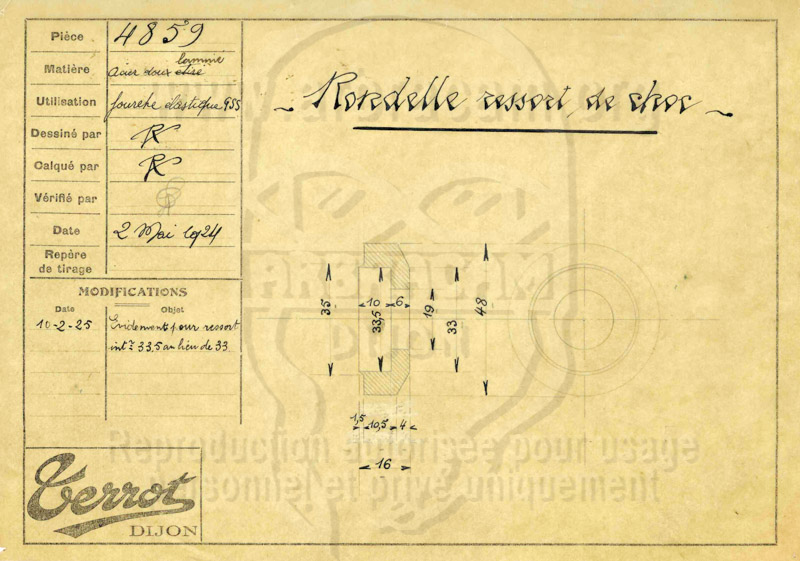 Pièce 4859
Matière Acier doux lamine
Utilisation fourche élastique
Dessiné par
Calqué par
Vérifié par
Date 2 Mai 1924
Repère
de tirage
MODIFICATIONS
Date Objet
10-2-25 Evidement pour ressort
intr 33,5 au lieu de 33
Terrot
DIJON
Rondelle ressort de choc
10 6
35 33,5 19 33 48
1,5 10,5 4
16
DIJON
Reproduction autorisée pour usage
personnel et privé uniquement